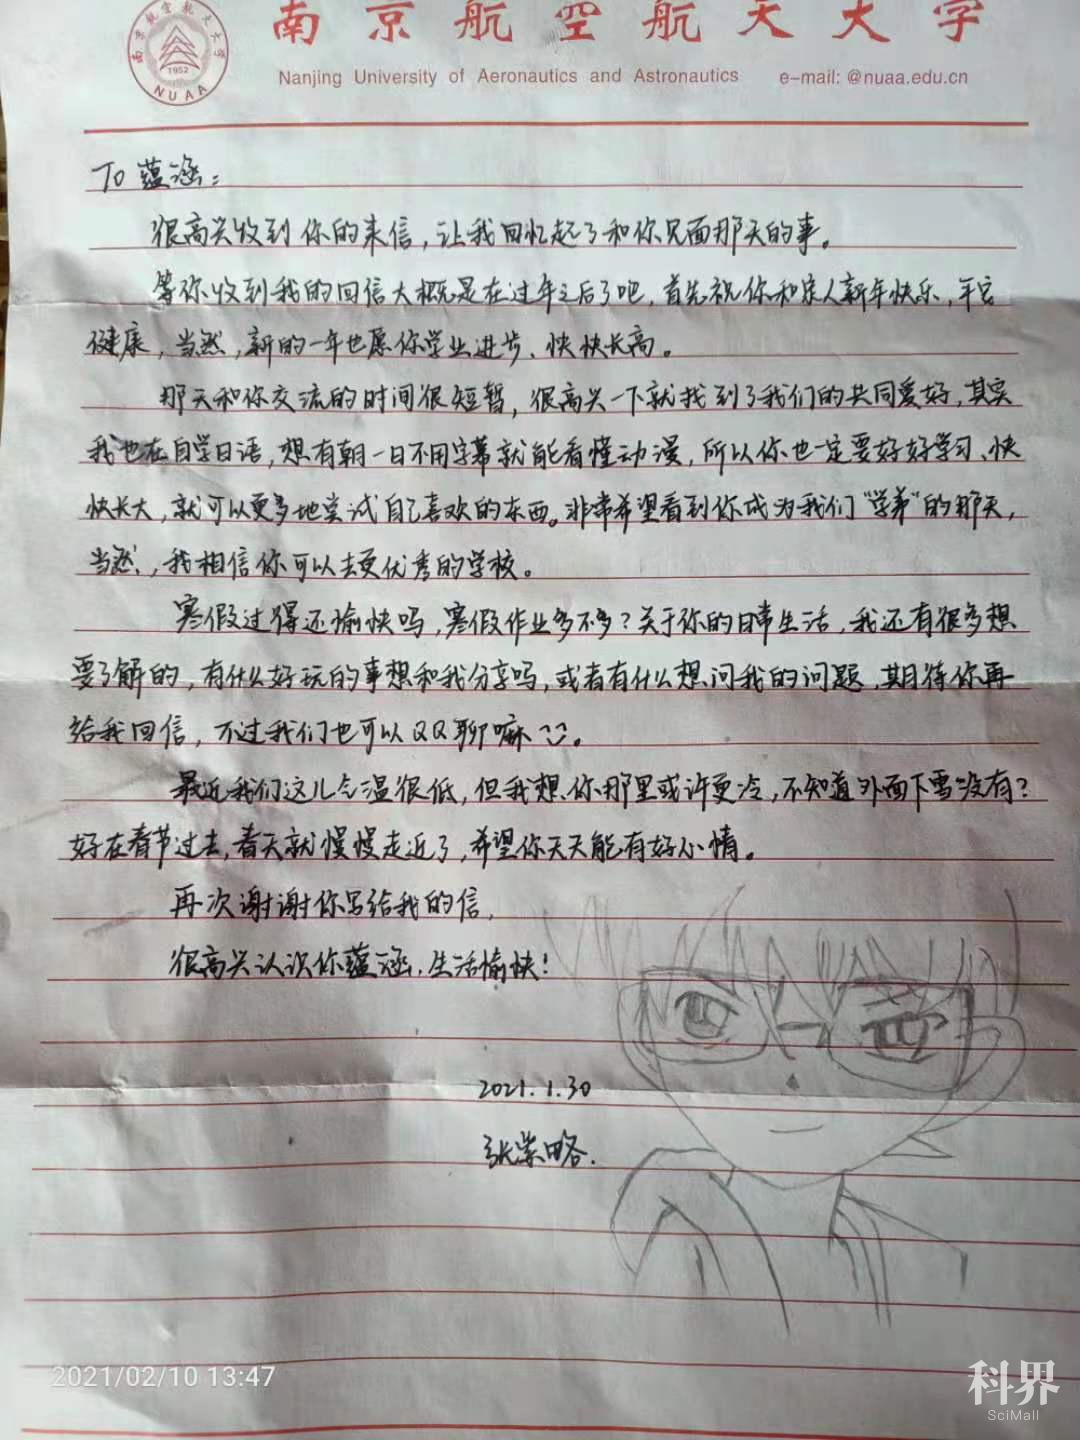 南京航空航天大学
南京航空航天大学
1952
NUAA
Nanjing University of Aeronautics and Astronautics e-mail: @nuaa.edu.cn
To 蕴涵：
很高兴收到你的来信，让我回忆起了和你见面那天的事。
等你收到我的回信大概是在过年之后了吧，首先祝你和家人新年快乐，平安
健康，当然，新的一年也愿你学业进步、快快长高。
那天和你交流的时间很短暂，很高兴一下就找到了我们的共同爱好，其实
我也在自学日语，想有朝一日不用字幕就能看懂动漫，所以你也一定要好好学习、快
快长大，就可以更多地尝试自己喜欢的东西。非常希望看到你成为我们“学弟”的那天，
当然，我相信你可以去更优秀的学校。
寒假过得还愉快吗，寒假作业多不多？关于你的日常生活，我还有很多想
要了解的，有什么好玩的事想和我分享吗，或者有什么想问我的问题，期待你再
给我回信，不过我们也可以QQ聊嘛
最近我们这儿气温很低，但我想你那里或许更冷，不知道外面下雪没有？
好在春节过去，春天就慢慢走近了，希望你天天能有好心情。
再次谢谢你写给我的信，
很高兴认识你蕴涵，生活愉快！
2021.1.30
张崇略.
2021/02/10 13:47
科界
SciMall